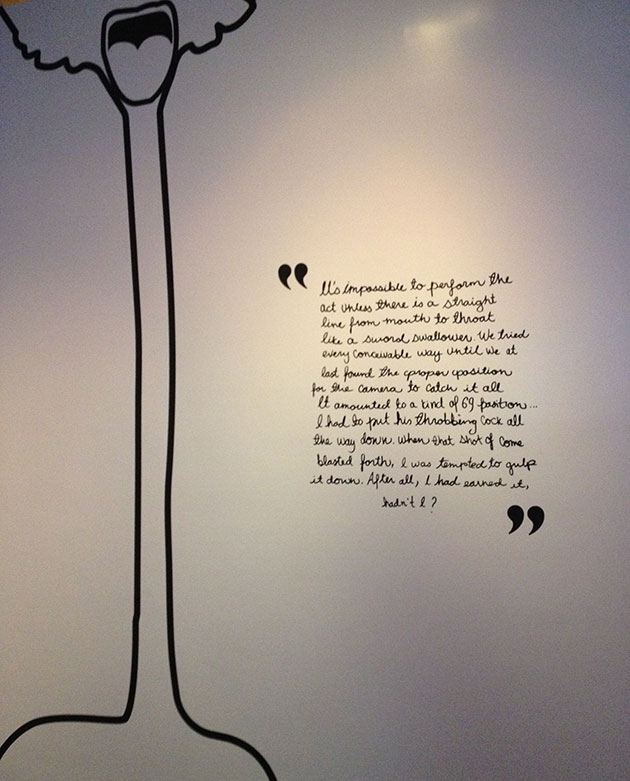 "It's impossible to perform the
act unless there is a straight
line from mouth to throat
like a sword swallower. We tried
every conceivable way until we at
last found the proper position
for the camera to catch it all
It amounted to a kind of 69 position...
I had to put his throbbing cock all
the way down. When that shot of come
blasted forth, I was tempted to gulp
it down. After all, I had earned it,
hadn't I?"